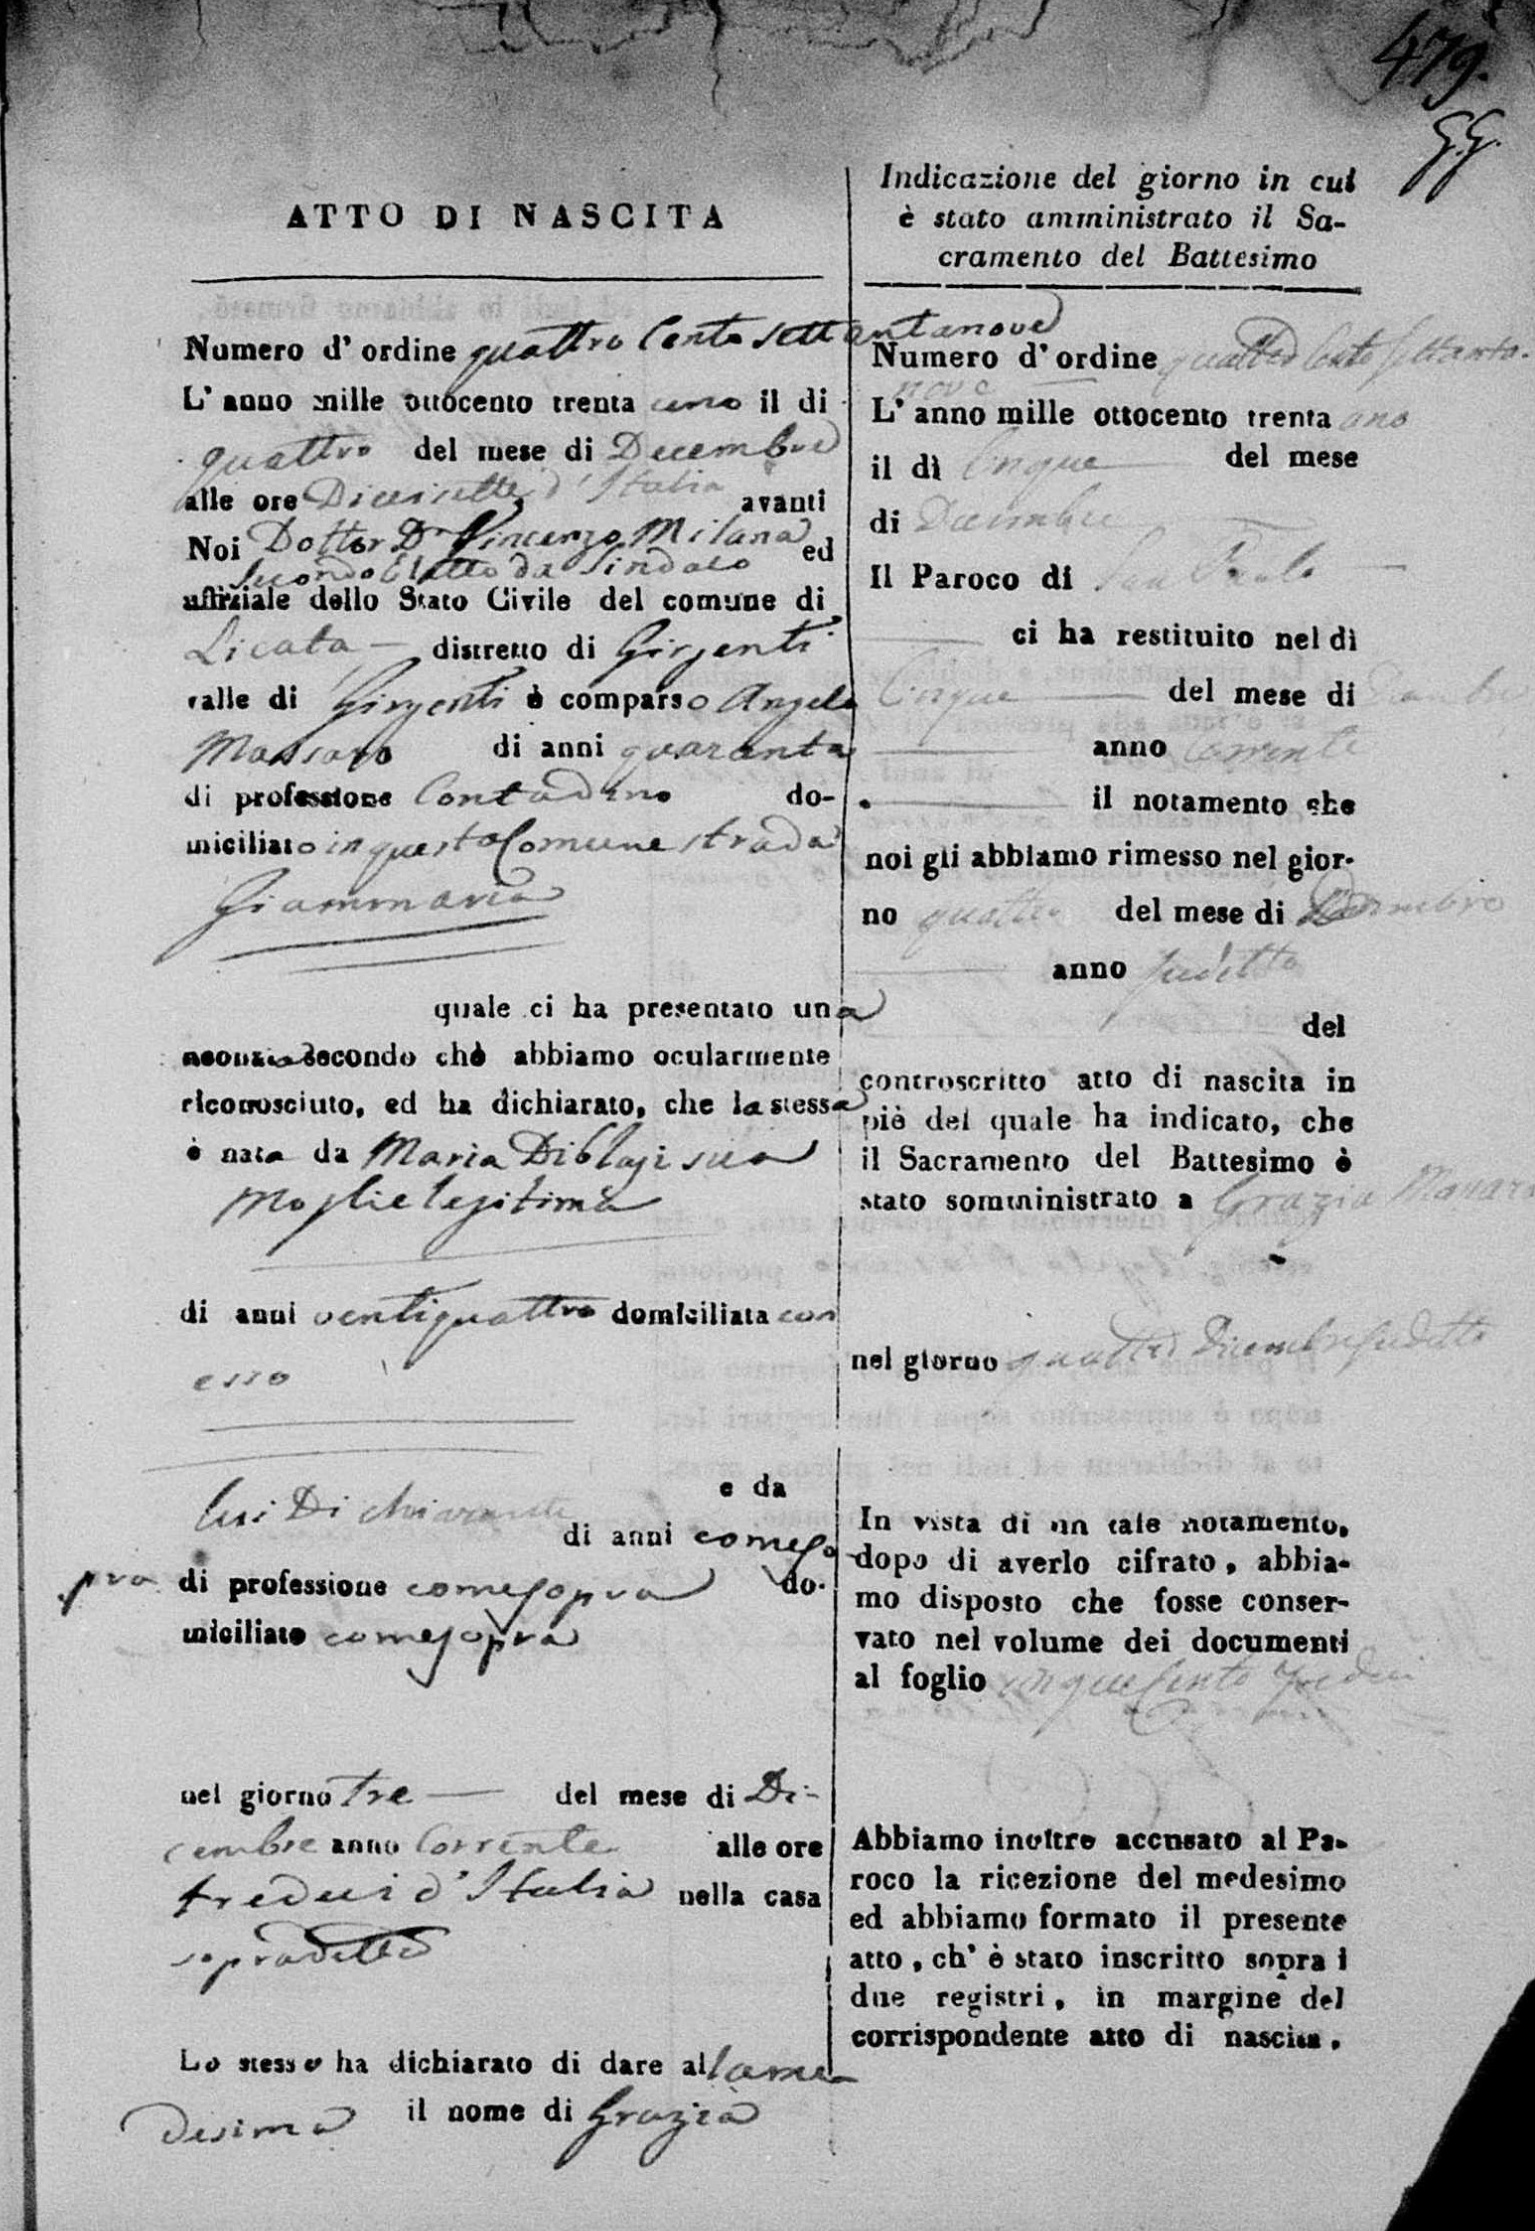 479.
G.G.
ATTO DI NASCITA
Numero d' ordine quattro Cento settantanove
L' anno mille ottocento trenta uno il di
quattro del mese di Decembre
alle ore Diecisette d'Italia avanti
Noi Dottor Dn Vincenzo Milana ed
Secondo Eletto da Sindaco
uffiziale dello Stato Civile del comune di
Licata distretto di Girgenti
valle di Girgenti è comparso Angelo
Massaro di anni quaranta
di professione Contadino do-
miciliato in questa Comune strada
Giammaria
quale ci ha presentato una
neonata secondo chè abbiamo ocularmente
riconosciuto, ed ha dichiarato, che la stessa
è nata da Maria Diblasi sua
Moglie legitima
di anni ventiquattro domiciliata con
esso
e da
lui Dichiarante di anni come so
pra di professione come sopra do-
miciliato come sopra
nel giorno tre del mese di Di-
cembre anno Corrente alle ore
tredici d'Italia nella casa
sopradetta
Lo stesso ha dichiarato di dare alla me
desima il nome di Grazia
Indicazione del giorno in cui
è stato amministrato il Sa-
cramento del Battesimo
Numero d' ordine quattro Cento Settanta-
nove
L' anno mille ottocento trenta uno
il dì Cinque del mese
di Decembre
Il Paroco di San Paolo
ci ha restituito nel dì
Cinque del mese di Decembre
anno corrente
il notamento che
noi gli abbiamo rimesso nel gior-
no quattro del mese di Decembre
anno sudetto
del
controscritto atto di nascita in
piè del quale ha indicato, che
il Sacramento del Battesimo è
stato somministrato a Grazia Massaro
nel giorno quattro Dicembre sudetto
In vista di un tale notamento,
dopo di averlo cifrato, abbia-
mo disposto che fosse conser-
vato nel volume dei documenti
al foglio cinque Cento tredici
Abbiamo inoltre accusato al Pa-
roco la ricezione del medesimo
ed abbiamo formato il presente
atto, ch' è stato inscritto sopra i
due registri, in margine del
corrispondente atto di nascita.